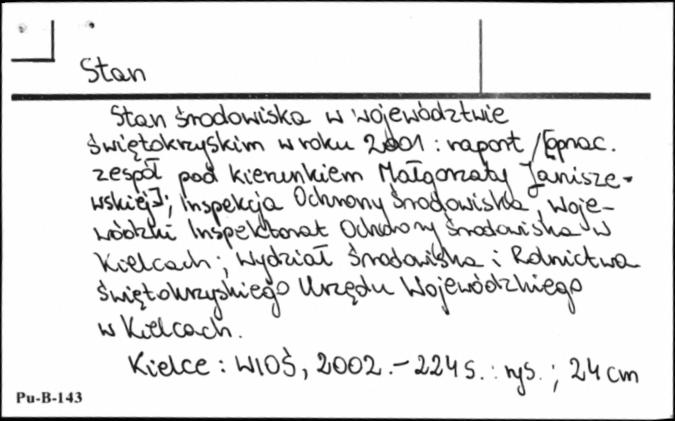 Stan
Stan środowiska w województwie
świętokrzyskim w roku 2001 : raport / [oprac.
zespół pod kierunkiem Małgorzaty Janisze-
wskiej] ; Inspekcja Ochrony Środowiska, Woje-
wódzki Inspektorat Ochrony Środowiska w
Kielcach ; Wydział Środowiska i Rolnictwa
Świętokrzyskiego Urzędu Wojewódzkiego
w Kielcach.
Kielce : WIOŚ, 2002. – 224 s. : rys. ; 24 cm
Pu-B-143